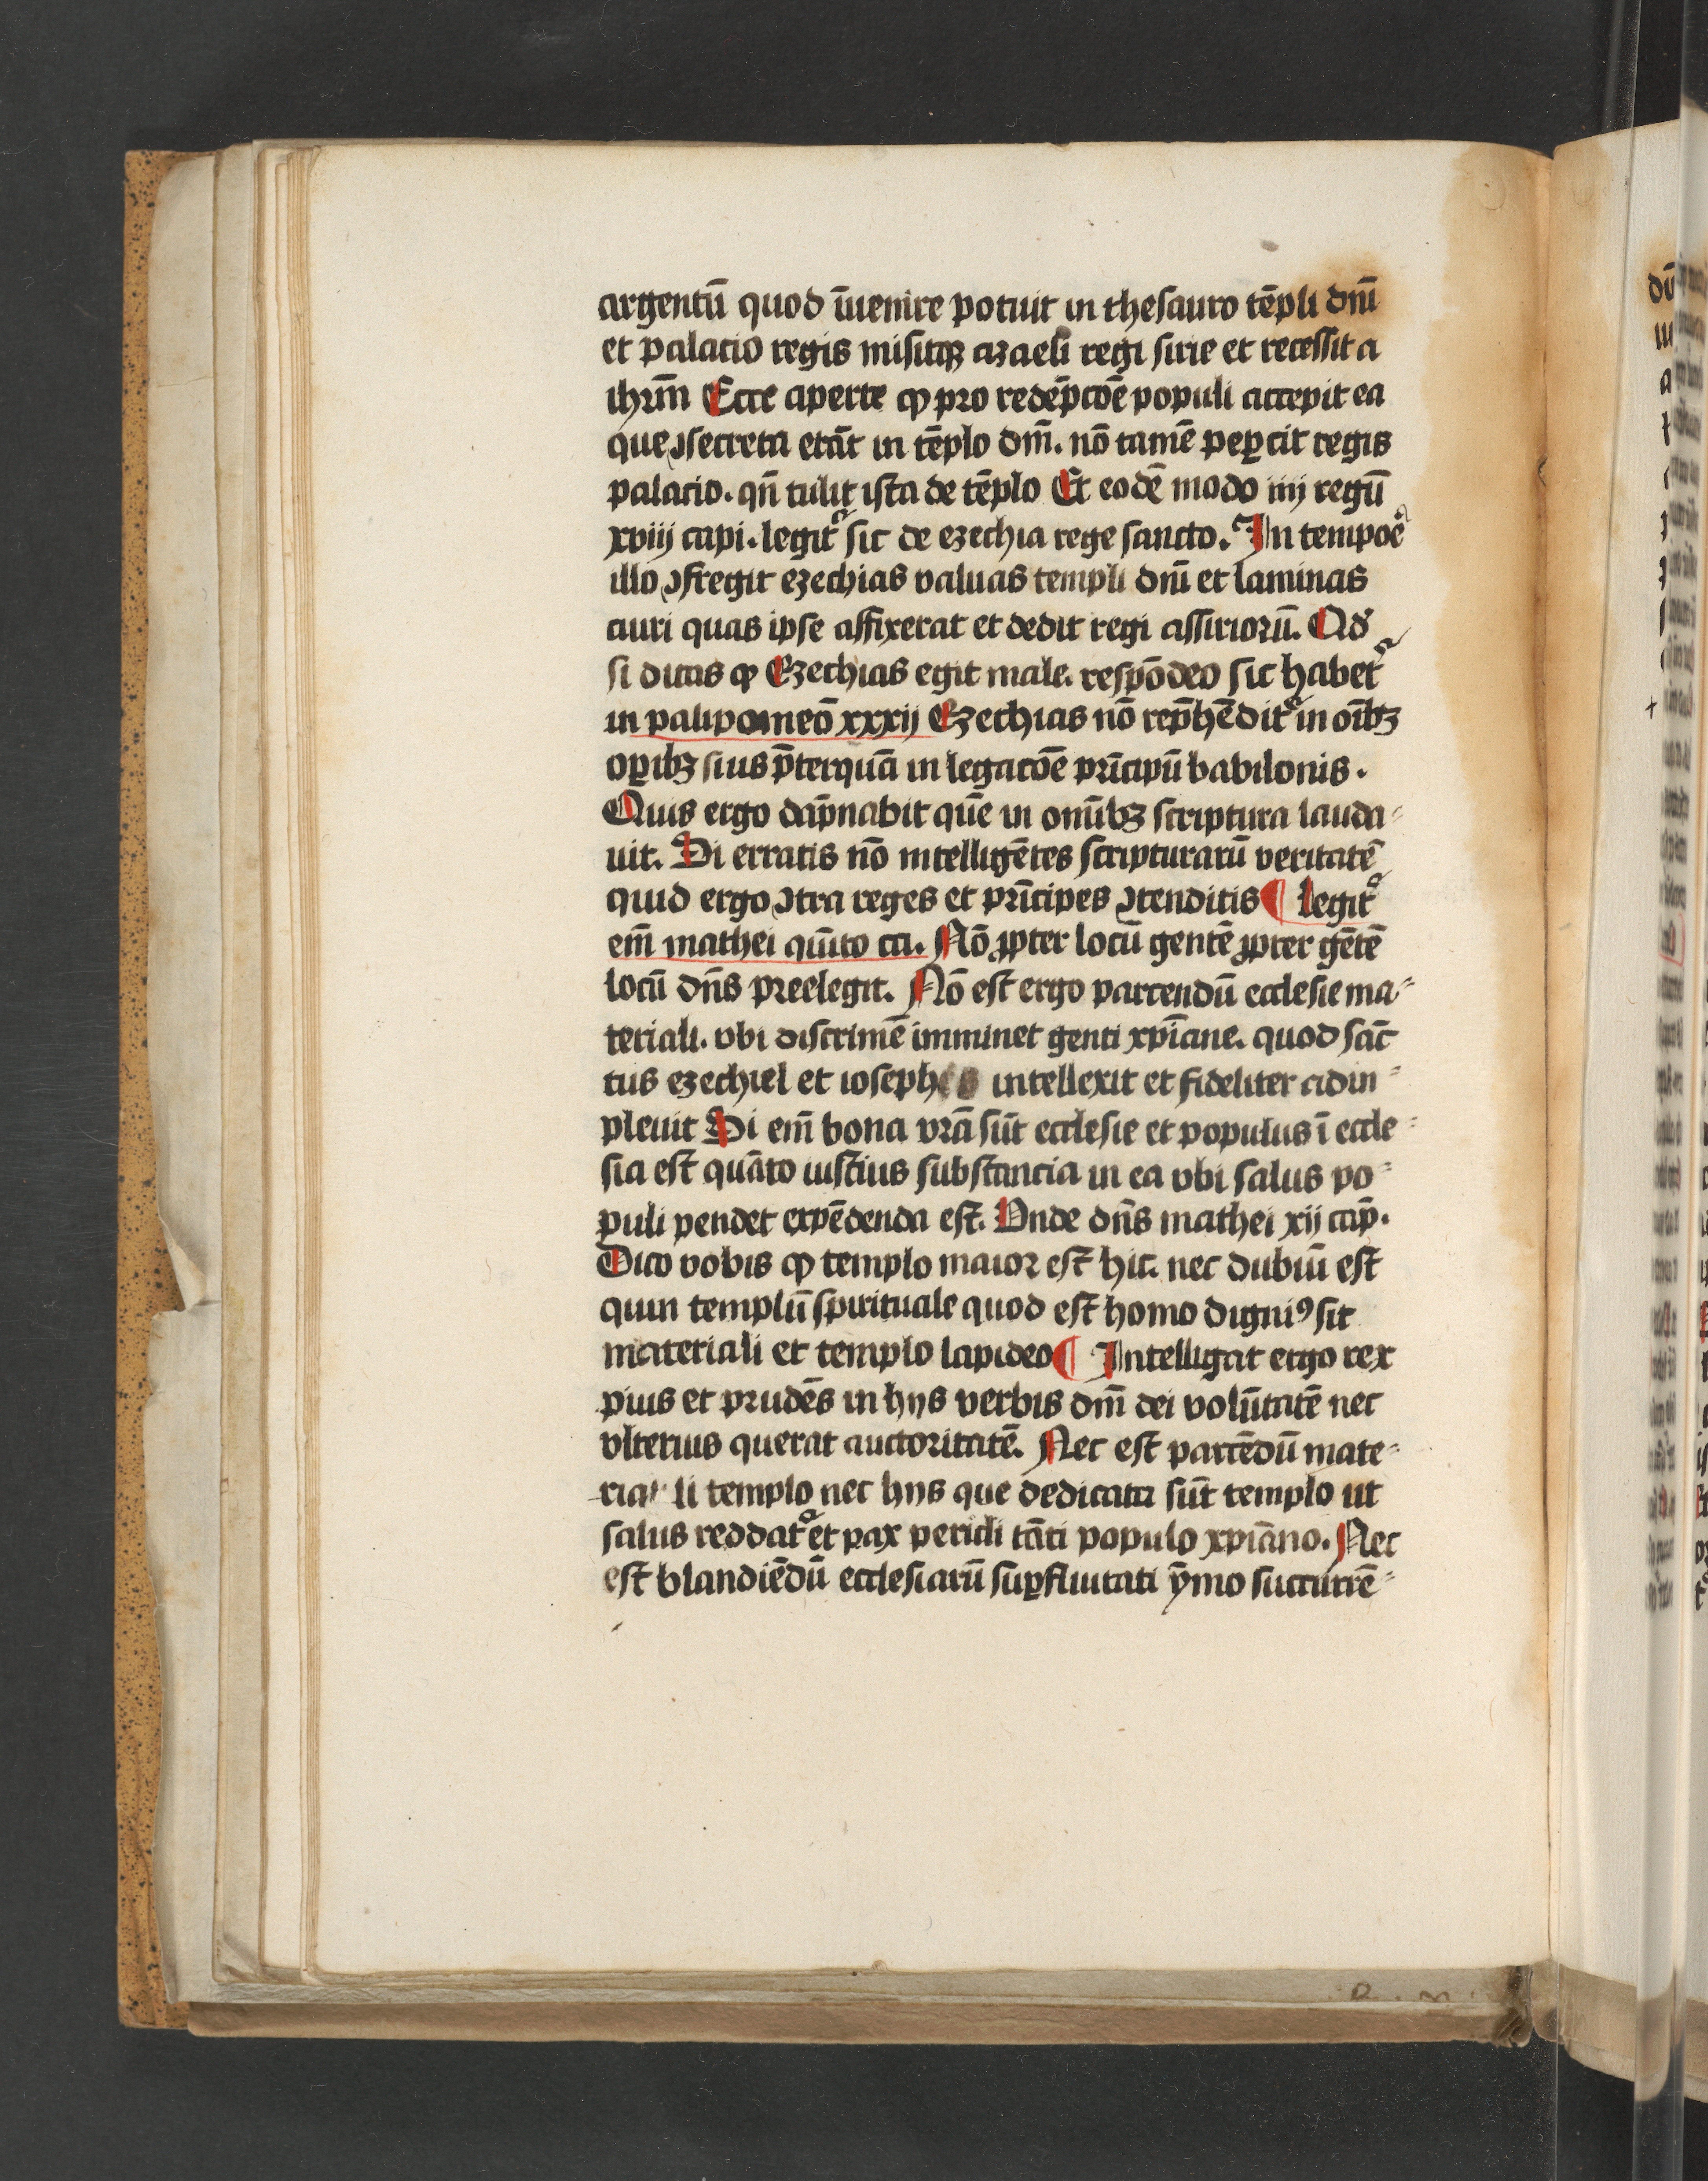 argentū quod īuenire potuit in thesauro tēpli dnī
et palacio regis misitqꝫ azaeli regi sirie et recessit a
ihrm̄ Ecce aperte ꝙ pro redēpcōe populi accepit ea
que ꝯsecreta erāt in tēplo dm̄. nō tamē peꝑcit regis
palacio. qn̄ tulit ista de tēplo Et eodē modo iiij regū
xviij capi. legitᷣ sic de ezechia rege sancto. In tempoē
illo ꝯfregit ezechias valuas templi dnī et laminas
auri quas ipse affixerat et dedit regi assiriorū. Qd
si dicas ꝙ Ezechias egit male. respōdeo sic habetᷣ
in palipomeō xxxij Ezechias nō rep̄hēditᷣ in oībꝫ
oꝑibꝫ suis p̄terquā in legacōe prīcipū babilonis.
Quis ergo dāpnabit quē in omībꝫ scriptura lauda-
uit. Si erratis nō intelligētes scripturarū veritatē
quid ergo ꝯtra reges et prīcipes ꝯtenditis ¶ Legitᷣ
em̄ mathei quīto ca. Nō ꝓpter locū gentē ꝓpter gētē
locū dn̄s preelegit. Nō est ergo parcendū ecclesie ma-
teriali. vbi discrimē imminet genti xp̄iane. quod sāc
tus ezechiel et ioseph intellexit et fideliter adin-
pleuit Si em̄ bona vrā sūt ecclesie et populus ī eccle-
sia est quāto iustius substancia in ea vbi salus po-
puli pendet expēdenda est. Vnde dn̄s mathei xij cap̄.
Dico vobis ꝙ templo maior est hic. nec dubiū est
quin templū spirituale quod est homo digniꝰ sit
materiali et templo lapideo ¶ Intelligat ergo rex
pius et prudēs in hijs verbis dm̄ dei volūtatē nec
vlterius querat auctoritatē. Nec est parcēdū mate-
riali templo nec hijs que dedicata sūt templo ut
salus reddatᷣ et pax periclī tāti populo xpiāno. Nec
est blandiēdū ecclesiarū suꝑfluitati ȳmo succurrē-